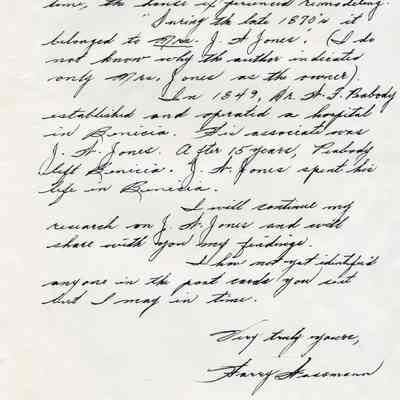 time, the house if personed remodeling.
"During the late 1870's it
belonged to Mrs. J. A. Jones". (I do
not know why the author indicated
only Mrs. Jones as the owner).
In 1849, Dr. W. F. Peabody
established and oprated a hospital
in Benicia. His associate was
J. A. Jones. After 15 years, Peabody
left Benicia. J. A. Jones spent his
life in Benicia.
I will continue my
research on J. A. Jones and will
share with you my findings.
I have not yet identified
anyone in the post cards you sent
but I may in time.
Very truly yours,
Harry Wassmann